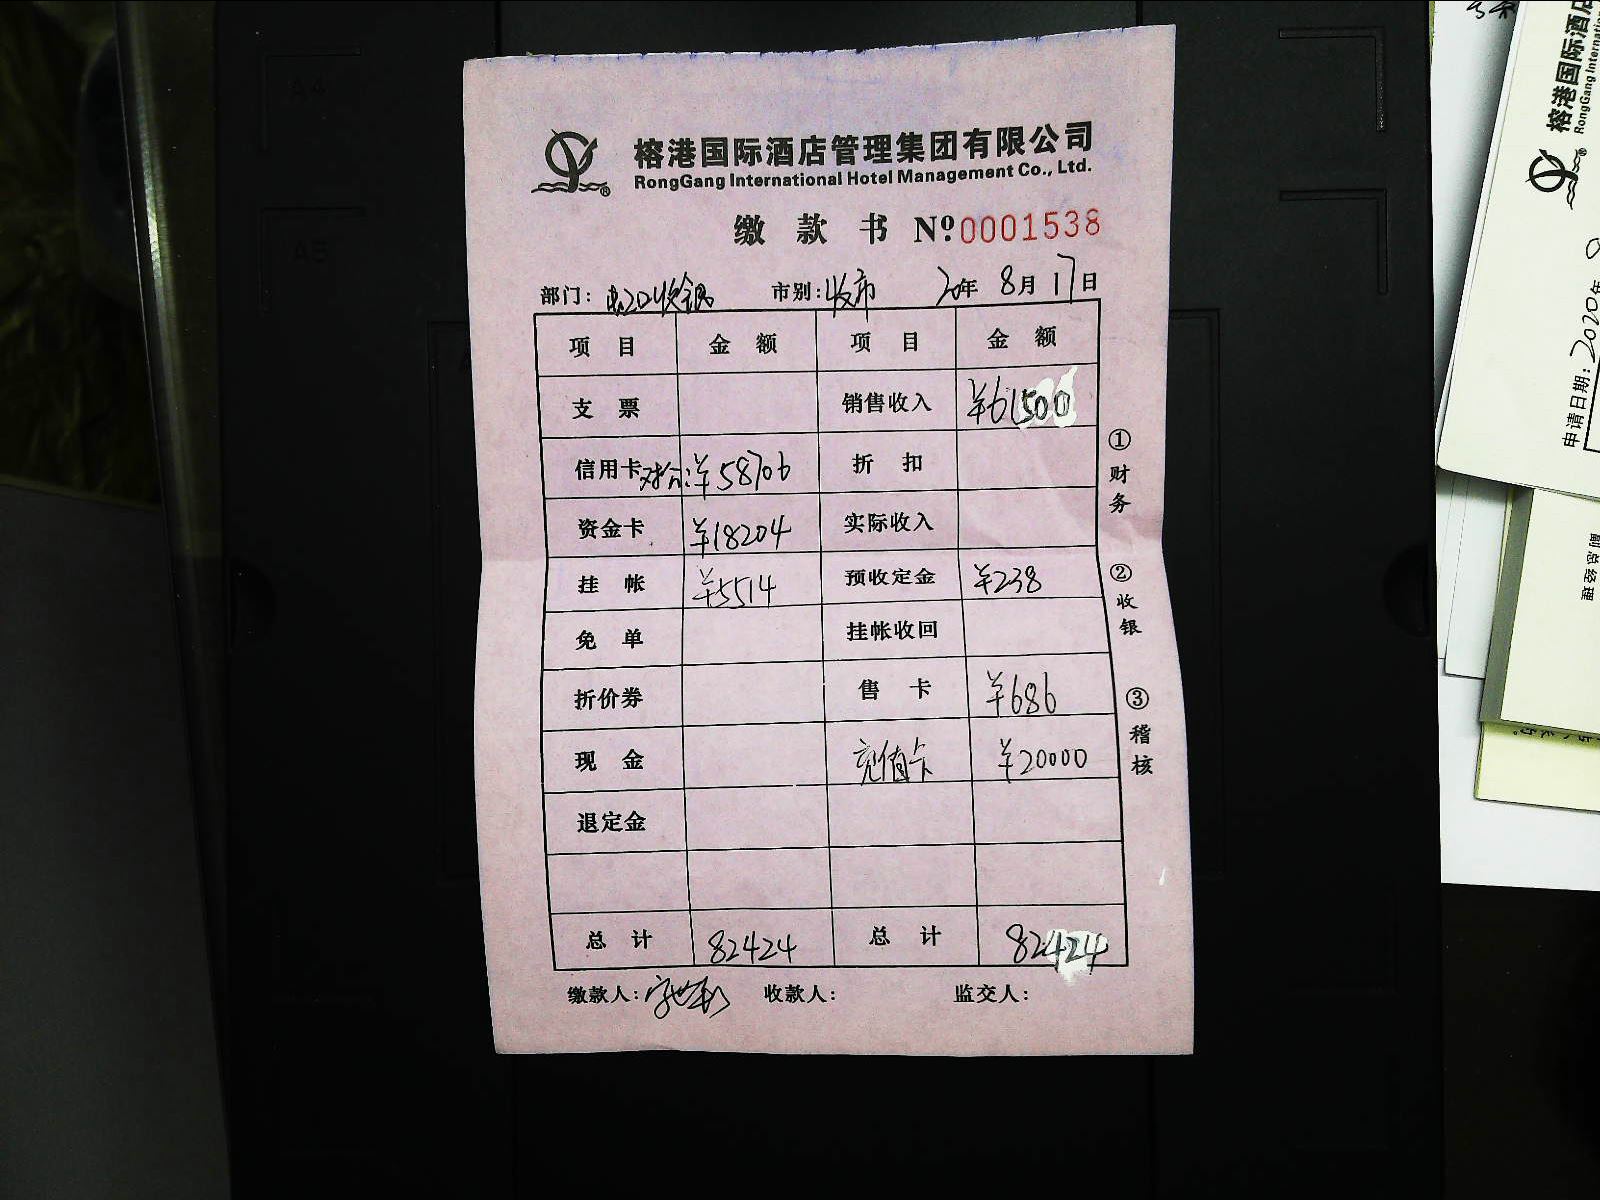 榕港国际酒店管理集团有限公司
RongGang International Hotel Management Co., Ltd.
缴款书 Nº0001538
部门: 收银 市别: 收市 20年 8月 17日
项目 金额 项目 金额
支票 销售收入 ¥61500
信用卡 ¥58706 折扣
资金卡 ¥18204 实际收入
挂帐 ¥5514 预收定金 ¥238
免单 挂帐收回
折价券 售卡 ¥686
现金 充值卡 ¥20000
退定金
总计 82424 总计 82424
缴款人: 收款人: 监交人:
①财务
②收银
③稽核
榕港国际酒店
RongGang Internation
申请日期: 2020年
副总经理